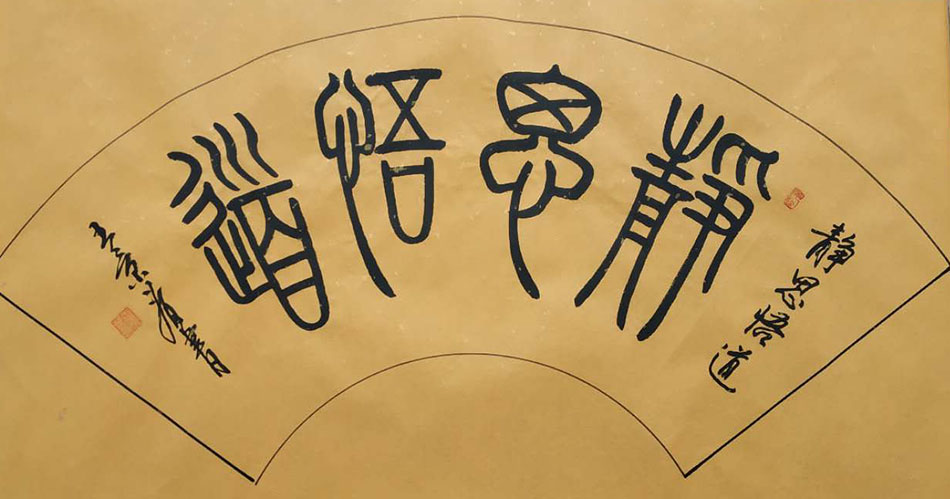 静思悟道
靜思悟道